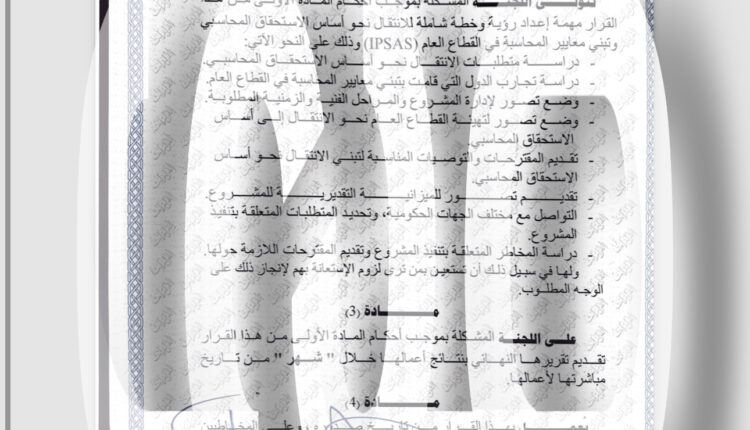 تتولى اللجنة المشكلة بموجب أحكام المادة الأولى من هذا
القرار مهمة إعداد رؤية وخطة شاملة للانتقال نحو أساس الاستحقاق المحاسبي
وتبني معايير المحاسبة في القطاع العام (IPSAS) وذلك على النحو الآتي:
- دراسة متطلبات الانتقال نحو أساس الاستحقاق المحاسبي.
- دراسة تجارب الدول التي قامت بتبني معايير المحاسبة في القطاع العام.
- وضع تصور لإدارة المشروع والمراحل الفنية والزمنية المطلوبة.
- وضع تصور لتهيئة القطاع العام نحو الانتقال إلى أساس
الاستحقاق المحاسبي.
- تقديم المقترحات والتوصيات المناسبة لتبني الانتقال نحو أساس
الاستحقاق المحاسبي.
- تقديم تصور للميزانية التقديرية للمشروع.
- التواصل مع مختلف الجهات الحكومية، وتحديد المتطلبات المتعلقة بتنفيذ
المشروع.
- دراسة المخاطر المتعلقة بتنفيذ المشروع وتقديم المقترحات اللازمة حولها.
ولها في سبيل ذلك أن تستعين بمن ترى لزوم الإستعانة بهم لإنجاز ذلك على
الوجه المطلوب.
مادة (3)
على اللجنة المشكلة بموجب أحكام المادة الأولى من هذا القرار
تقديم تقريرها النهائي بنتائج أعمالها خلال " شهر " من تاريخ
مباشرتها لأعمالها.
مادة (4)
يُعمل بهذا القرار من تاريخ صدوره، وعلى المخاطبين